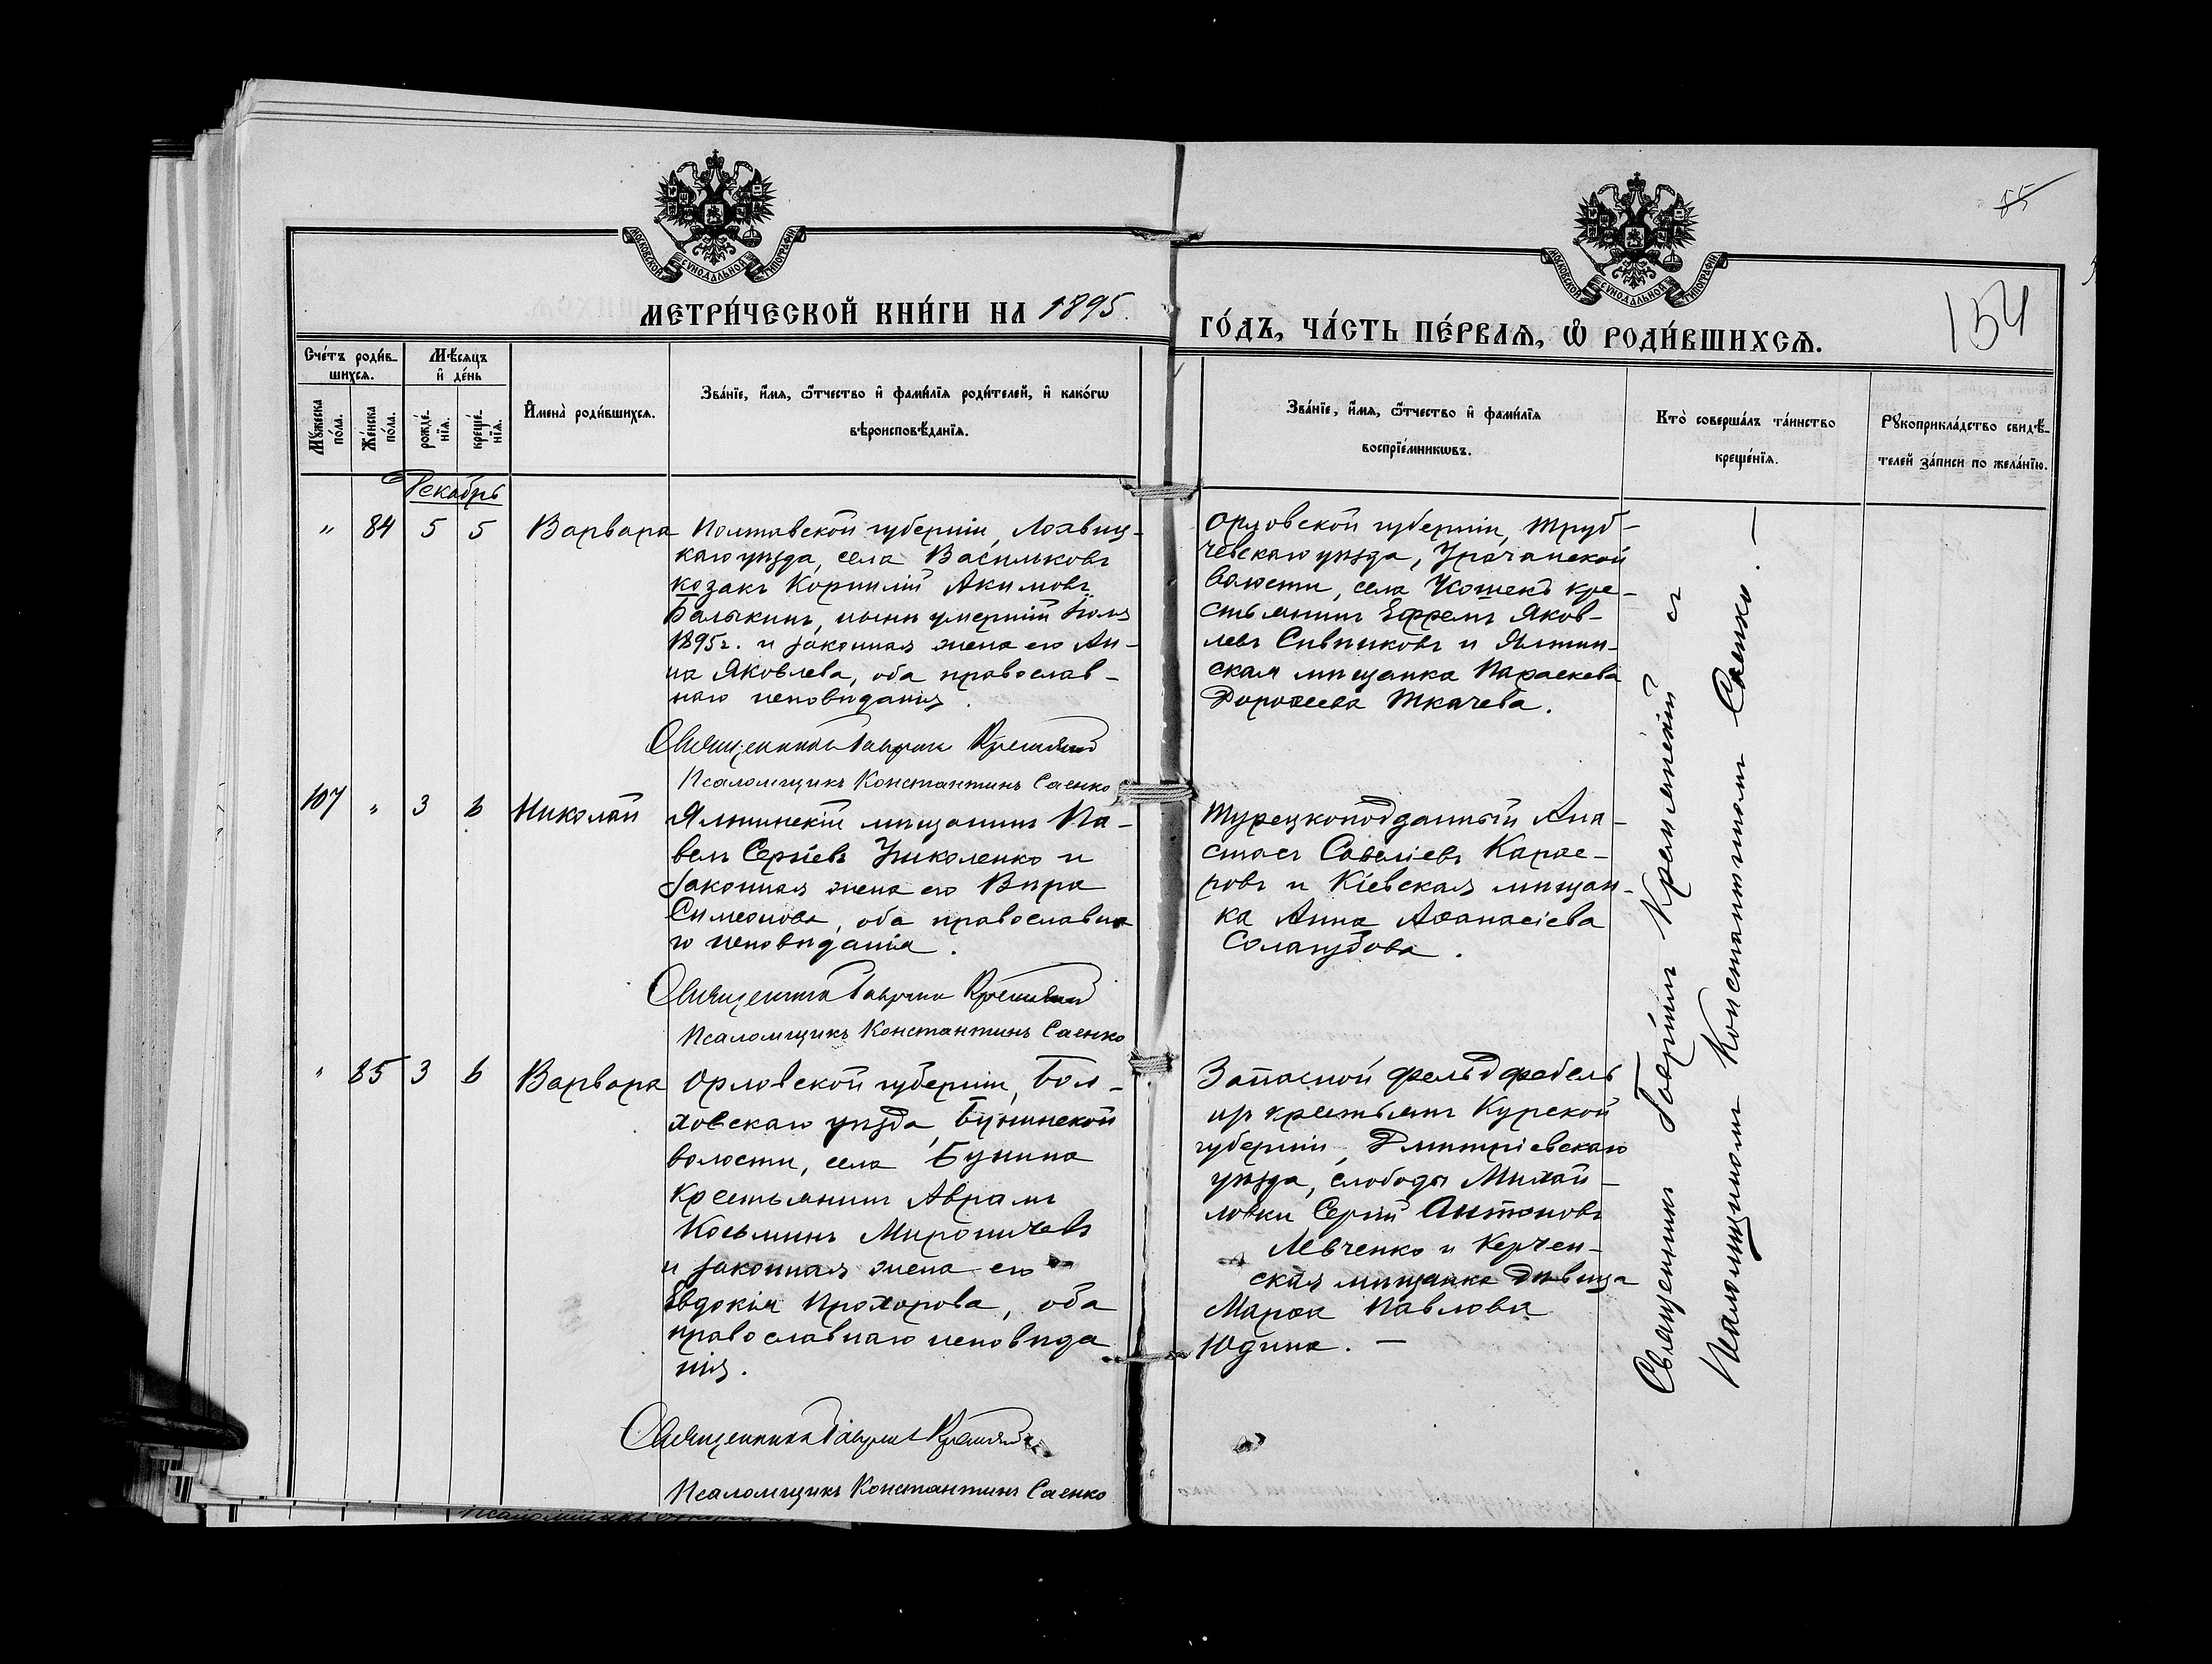 55
154
МОСКОВСКОЙ СУНОДАЛЬНОЙ ТИПОГРАФІИ
МОСКОВСКОЙ СУНОДАЛЬНОЙ ТИПОГРАФІИ
МЕТРИ́ЧЕСКОЙ КНИ́ГИ НА 1895
ГО́ДЪ, ЧА́СТЬ ПЕ́РВАѦ, Ѿ РОДИ́ВШИХСѦ.
Сче́тъ роди́в-
шихсѧ.
Мѣ́сѧцъ
и де́нь
Мꙋ́жеска
по́ла.
Же́нска
по́ла.
рожде́-
нїѧ.
креще́-
нїѧ.
Имена̀ роди́вшихсѧ.
Зва́нїе, и́мѧ, ѻ́тчество и фами́лїѧ роди́телей, и како́гѡ
вѣроисповѣ́данїѧ.
Зва́нїе, и́мѧ, ѻ́тчество и фами́лїѧ
воспрїе́мникѡвъ.
Кто̀ соверша́лъ та́инство
креще́нїѧ.
Рꙋкоприкла́дство свидѣ́-
телей за́писи по жела́нїю.
Декабрь
" 84 5 5 Варвара
Полтавской губерніи, Лохвиц-
каго уѣзда, села Васильковъ
козакъ Корнилій Акимовъ
Балыкинъ, нынѣ умершій
1895г. и законная жена его Ан-
на Яковлева, оба православ-
наго исповѣданія.
Священникъ Гавріилъ Кремянскій
Псаломщикъ Константинъ Саенко
Орловской губерніи, Труб-
чевскаго уѣзда,
волости, села кре-
стьянинъ Ефремъ Яков-
левъ Сивпиковъ и Ялтин-
ская мѣщанка Параскева
Дороѳеева Ткачева.
107 " 3 6 Николай
Ялтинскій мѣщанинъ Па-
велъ Сергіевъ Униколенко и
законная жена его Вѣра
Симеонова, оба православна
го исповѣданія.
Священникъ Гавріилъ Кремянскій
Псаломщикъ Константинъ Саенко
Турецкоподданный Ана-
стасъ Савеліевъ Карае-
ровъ и Кіевская мѣщан-
ка Анна Аѳанасіева
Солагубова.
" 85 3 6 Варвара
Орловской губерніи, Бол-
ховскаго уѣзда, Бунинской
волости, села Бунина
крестьянинъ Аврамъ
Косьминъ Мироничевъ
и законная жена его
Евдокія Прохорова, оба
православнаго исповѣда
нія.
Священникъ Гавріилъ Кремянскій
Псаломщикъ Константинъ Саенко
Запасной фельдфебель
изъ крестьянъ Курской
губерніи, Дмитріевскаго
уѣзда, слободы Михай-
ловки Сергій Антоновъ
Левченко и Керчен-
ская мѣщанка дѣвица
Марѳа Павлова
Юдина. —
Священникъ Гавріилъ Кремянскій съ
Псаломщикомъ Константиномъ Саенко. —